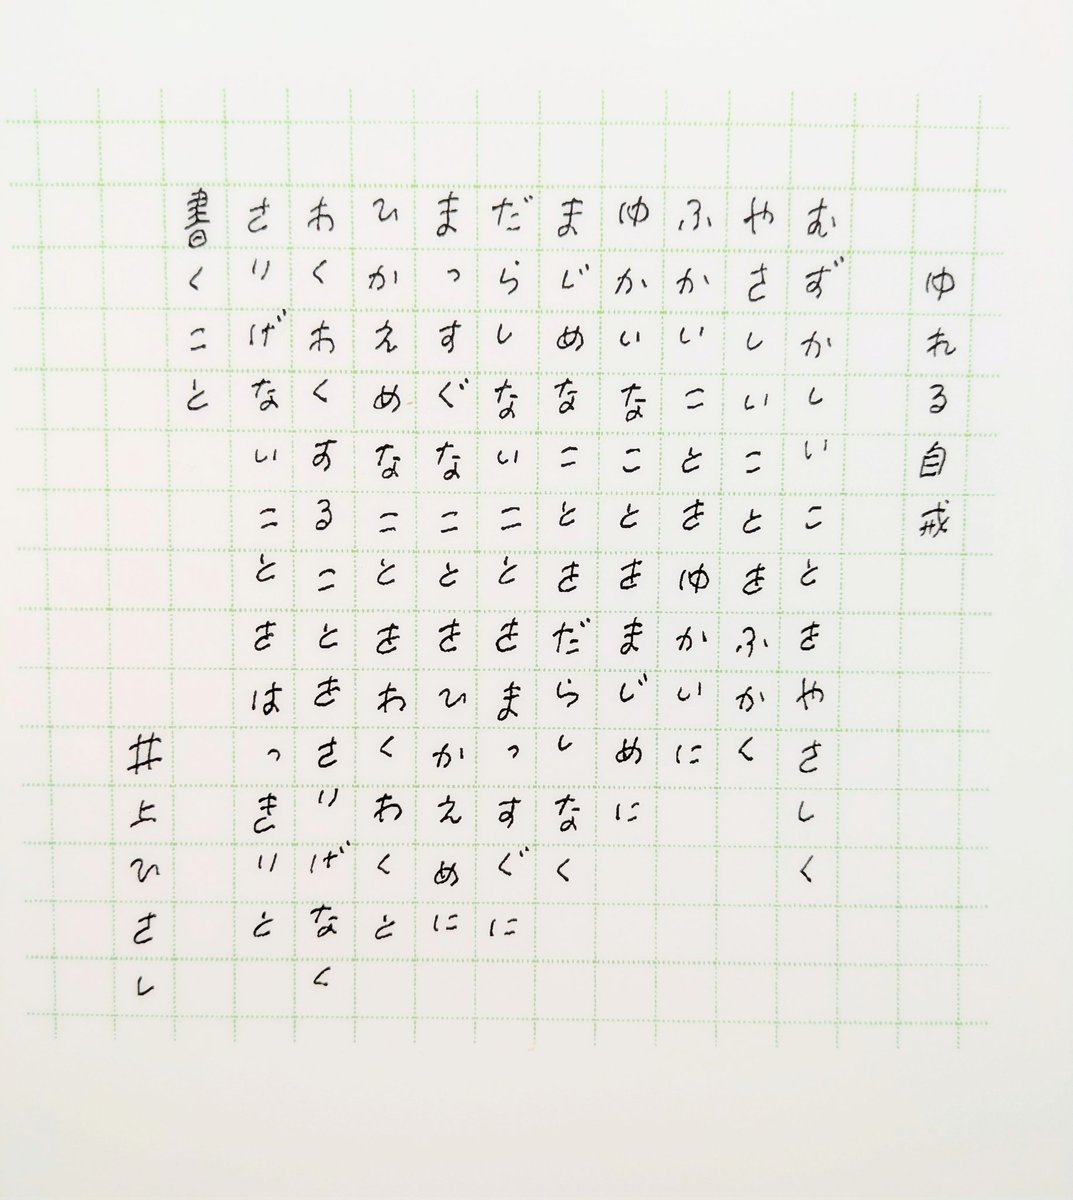 ゆれる自戒
むずかしいことをやさしく
やさしいことをふかく
ふかいことをゆかいに
ゆかいなことをまじめに
まじめなことをだらしなく
だらしないことをまっすぐに
まっすぐなことをひかえめに
ひかえめなことをわくわくと
わくわくすることをさりげなく
さりげないことをはっきりと
書くこと
井上ひさし